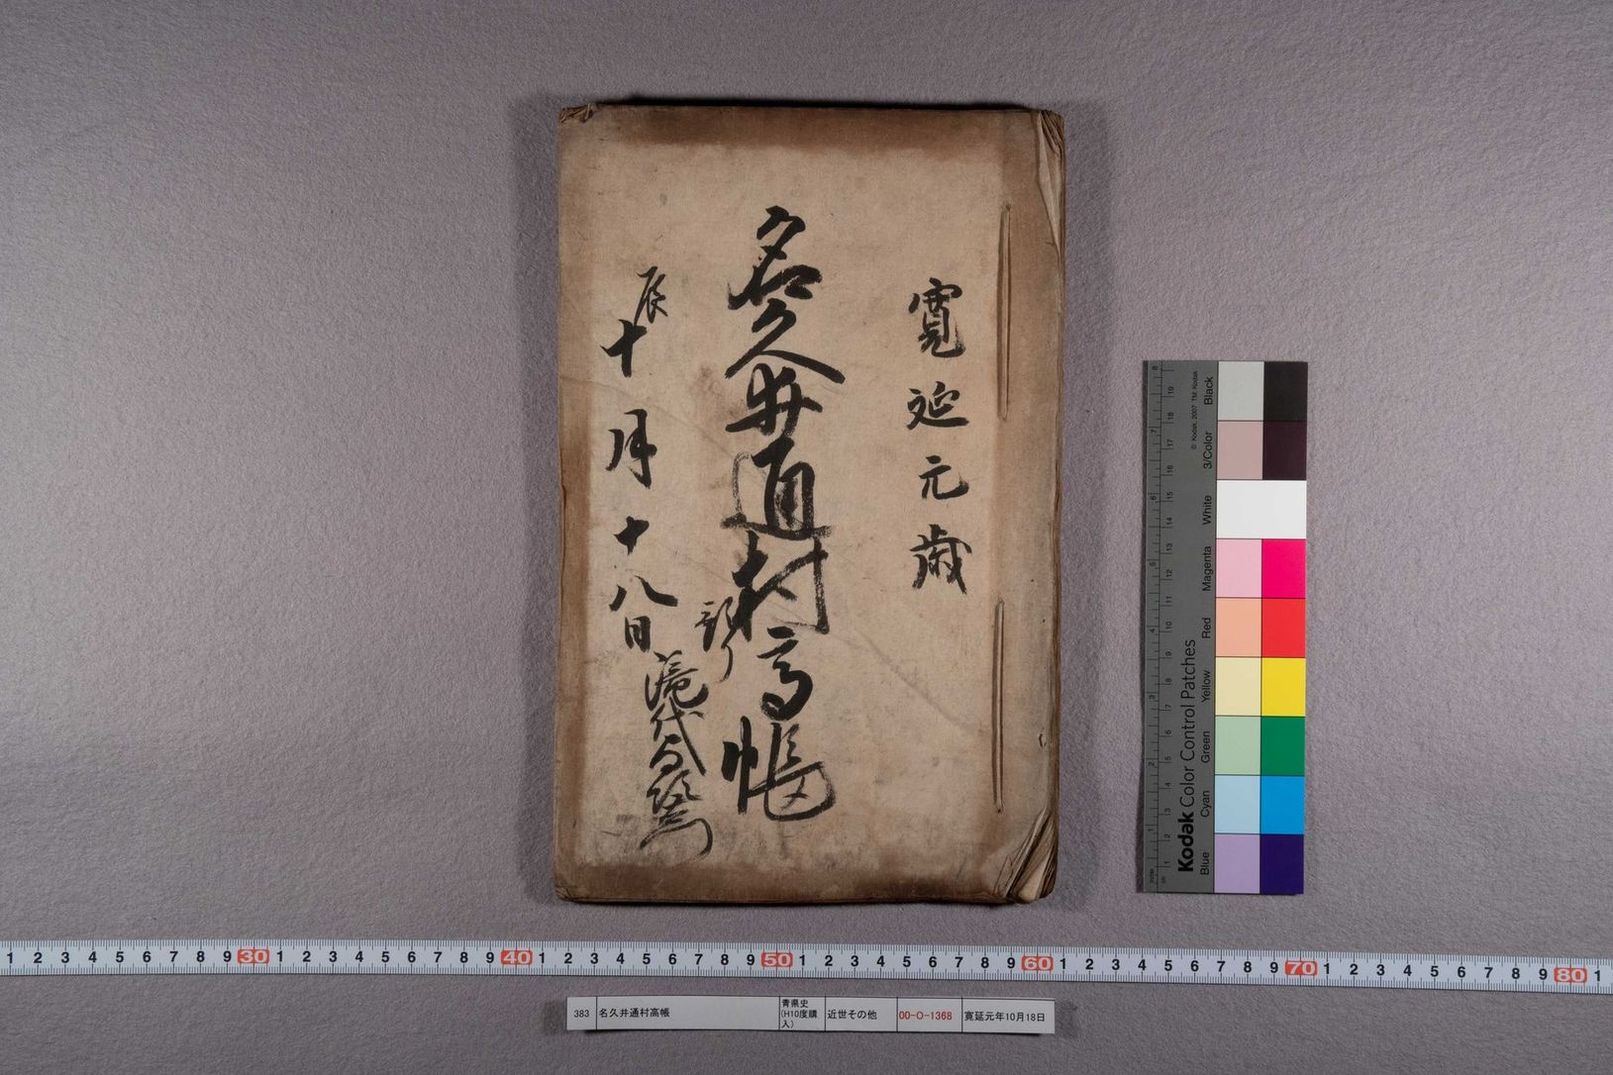 寛延元歳
名久井通村高帳
辰
十月十八日
1 2 3 4 5 6 7 8 9 30 1 2 3 4 5 6 7 8 9 40 1 2 3 4 5 6 7 8 9 50 1 2 3 4 5 6 7 8 9 60 1 2 3 4 5 6 7 8 9 70 1 2 3 4 5 6 7 8 9 80 1
383 名久井通村高帳 青県史(H10度購入) 近世その他 00-O-1368 寛延元年10月18日
Kodak Color Control Patches
© Kodak, 2007 TM: Kodak
Blue Cyan Green Yellow Red Magenta White 3/Color Black